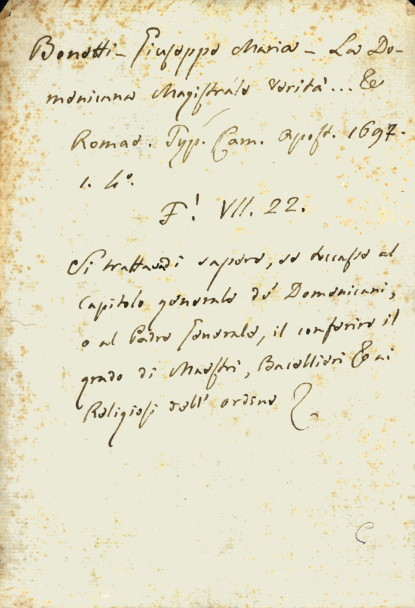 Bonetti - Giuseppe Maria - La Do-
menicana Magistrale verità ... &
Romae. Typ. Cam. Apost. 1697.
1. 4°.
F! VII. 22.
Si trattava di sapere, se toccasse al
Capitolo generale de' Domenicani,
o al Padre Generale, il conferire il
grado di Maestri, Bacellieri & ai
Religiosi dell' ordine
C